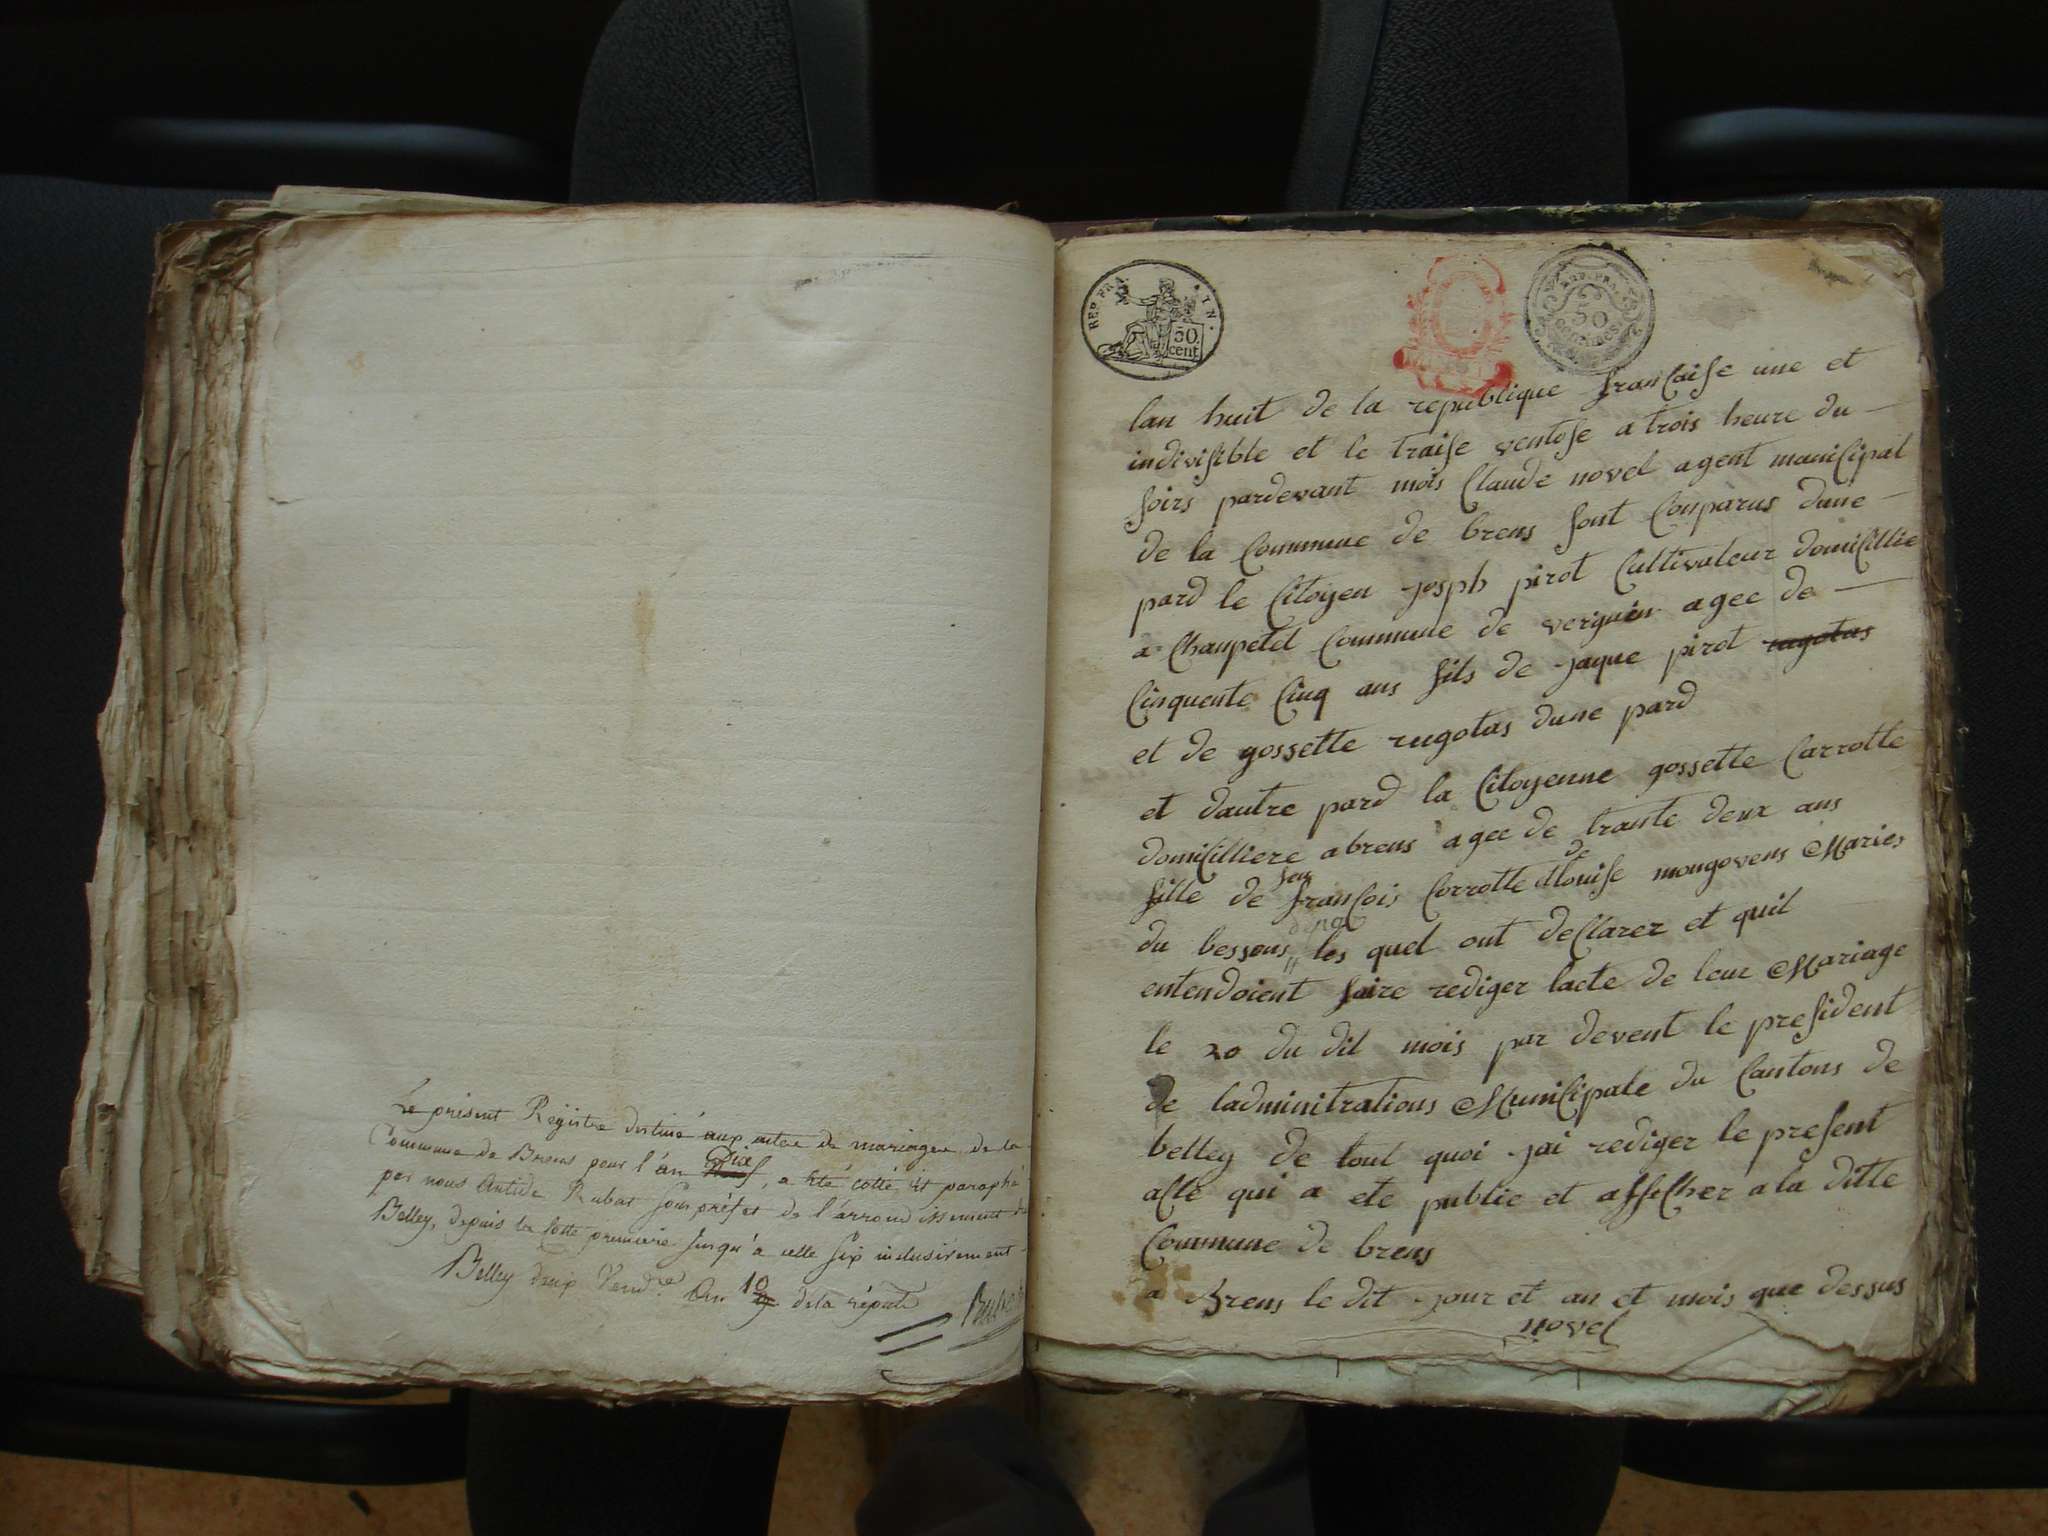 Le présent Registre destiné aux actes de mariages de la
Commune de Brens pour l'an Dix, a été cotté et paraphé
par nous Antide Rubat sous préfet de l'arrondissement de
Belley, depuis la cotte premiere jusqu'à celle six inclusivement
Belley Vend.re An 10 de la répub
Rubat
REP. FRA
50
cent
REP. FRA.
50
CENTIMES
lan huit de la republique francaise une et
indivisible et le traise ventose a trois heure du
soirs pardevant mois Claude novel agent manicipal
de la Commune de brens sont Conparus dune
pard le Citoyen josph pirot Cultivateur domicillie
a Chanpetel Commune de verguin agee de
Cinquente Cinq ans fils de jaque pirot rugotas
et de gossette rugotas dune pard
et dautre pard la Citoyenne gossette Carrotte
domicilliere a brens agee de trante deux ans
fille de feu francois Corrotte de louise mongovens Maries
du bessons les quel ont declarer et quil
entendoient faire rediger lacte de leur Mariage
le 20 du dit mois par devent le president
de ladminitrations Municipale du Cantons de
belley de tout quoi jai rediger le present
acte qui a ete publie et afficher a la ditte
Commune de brens
a Brens le dit jour et an et mois que dessus
novel